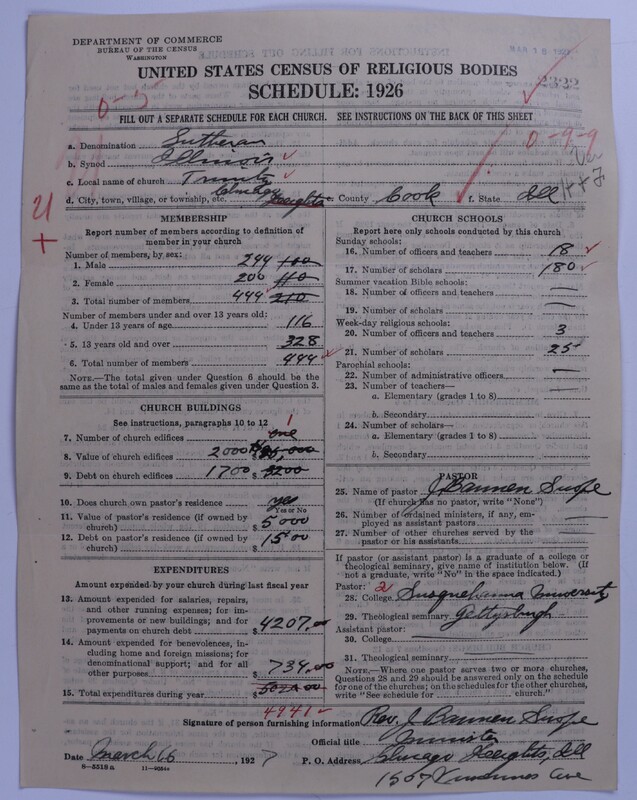 DEPARTMENT OF COMMERCE
BUREAU OF THE CENSUS
WASHINGTON
UNITED STATES CENSUS OF RELIGIOUS BODIES
SCHEDULE: 1926
2332
FILL OUT A SEPARATE SCHEDULE FOR EACH CHURCH. SEE INSTRUCTIONS ON THE BACK OF THIS SHEET
0-9-9
a. Denomination Lutheran
b. Synod Illinois
c. Local name of church Trinity
d. City, town, village, or township, etc. Chicago Heights e. County Cook f. State Ill
MEMBERSHIP
Report number of members according to definition of
member in your church
Number of members, by sex:
1. Male 244 100
2. Female 200 110
3. Total number of members 444 210
Number of members under and over 13 years old:
4. Under 13 years of age 116
5. 13 years old and over 328
6. Total number of members 444
NOTE.—The total given under Question 6 should be
the same as the total of males and females given under Question 3.
CHURCH BUILDINGS
See instructions, paragraphs 10 to 12
7. Number of church edifices one 1
8. Value of church edifices 20000
9. Debt on church edifices 1700 3200
10. Does church own pastor's residence yes
Yes or No
11. Value of pastor's residence (if owned by
church) $ 5000
12. Debt on pastor's residence (if owned by
church) $ 1500
EXPENDITURES
Amount expended by your church during last fiscal year
13. Amount expended for salaries, repairs,
and other running expenses; for im-
provements or new buildings; and for
payments on church debt $ 4207.00
14. Amount expended for benevolences, in-
cluding home and foreign missions; for
denominational support; and for all
other purposes $ 734.00
15. Total expenditures during year $
4941
CHURCH SCHOOLS
Report here only schools conducted by this church
Sunday schools:
16. Number of officers and teachers 18
17. Number of scholars 180
Summer vacation Bible schools:
18. Number of officers and teachers —
19. Number of scholars —
Week-day religious schools:
20. Number of officers and teachers 3
21. Number of scholars 25
Parochial schools:
22. Number of administrative officers —
23. Number of teachers—
a. Elementary (grades 1 to 8)
b. Secondary
24. Number of scholars—
a. Elementary (grades 1 to 8)
b. Secondary
PASTOR
25. Name of pastor J. Bannen Swope
(If church has no pastor, write "None")
26. Number of ordained ministers, if any, em-
ployed as assistant pastors —
27. Number of other churches served by the
pastor or his assistants
If pastor (or assistant pastor) is a graduate of a college or
theological seminary, give name of institution below. (If
not a graduate, write "No" in the space indicated.)
Pastor: 2
28. College Susquehanna University
29. Theological seminary Gettysburgh
Assistant pastor:
30. College
31. Theological seminary
NOTE.—Where one pastor serves two or more churches,
Questions 28 and 29 should be answered only on the schedule
for one of the churches; on the schedules for the other churches,
write "See schedule for church."
Signature of person furnishing information Rev. J Bannen Swope
Official title minister
Date March 16 1927 P. O. Address Chicago Heights, Ill
8—5518a